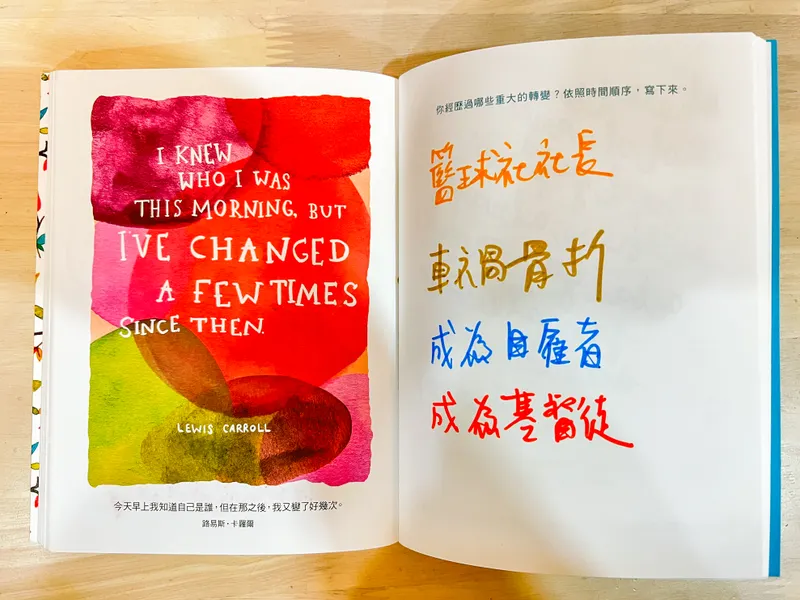 I KNEW
WHO I WAS
THIS MORNING, BUT
I'VE CHANGED
A FEW TIMES
SINCE THEN.
LEWIS CARROLL
今天早上我知道自己是誰，但在那之後，我又變了好幾次。
路易斯・卡羅爾
你經歷過哪些重大的轉變？依照時間順序，寫下來。
籃球社社長
車禍骨折
成為自雇者
成為基督徒